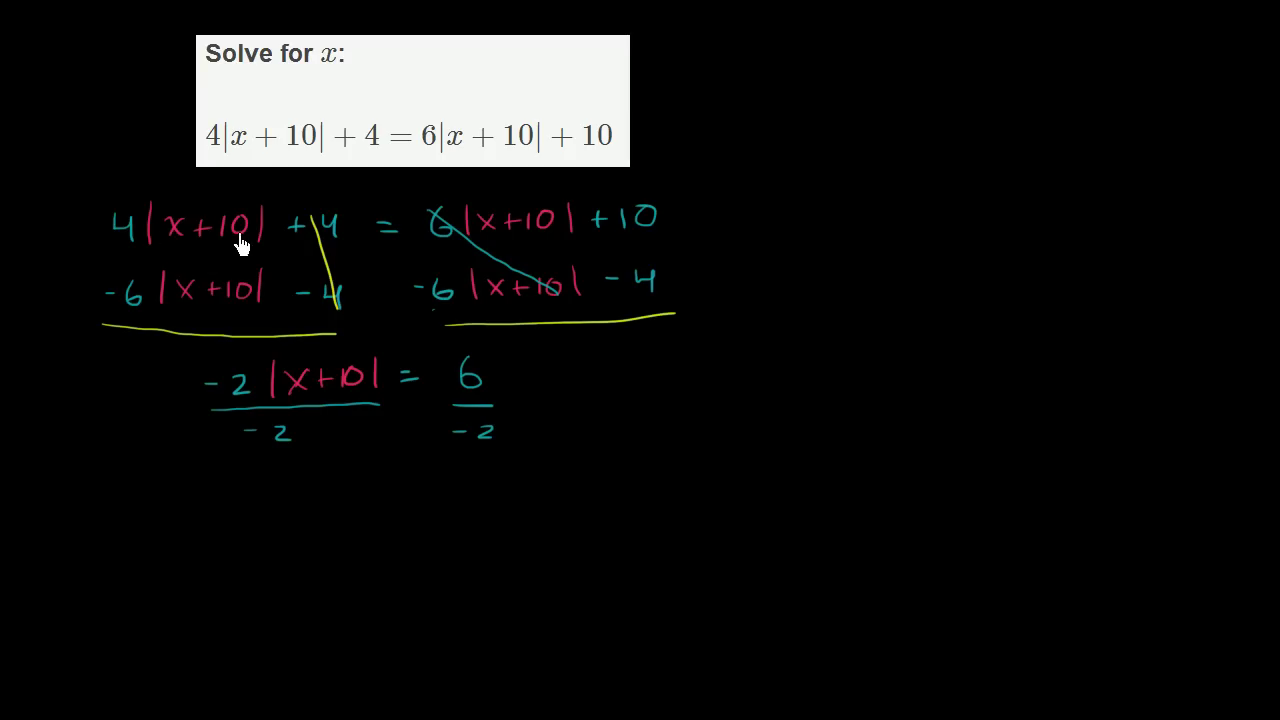 Solve for x:
4|x + 10| + 4 = 6|x + 10| + 10
4|x+10| +4 = 6|x+10| +10
-6|x+10| -4 -6|x+10| -4
-2|x+10| = 6
-2 -2